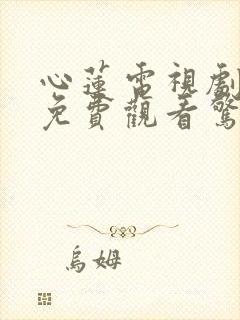 心蓮電視劇
免費觀看驚
烏姆